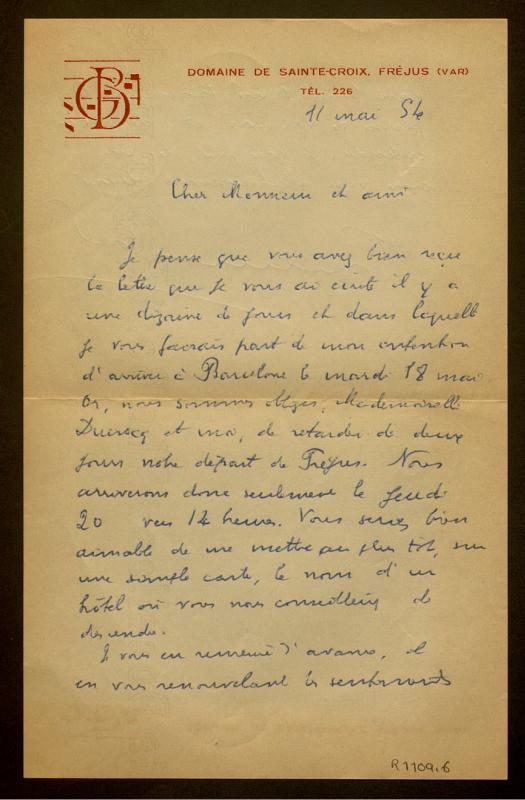 GB
DOMAINE DE SAINTE-CROIX, FRÉJUS (VAR)
TÉL. 226
11 mai 54
Cher Monsieur et ami
Je pense que vous avez bien reçu
la lettre que je vous ai écrite il y a
une dizaine de jours et dans laquelle
je vous faisais part de mon intention
d'arriver à Barcelone le mardi 18 mai
Or, nous sommes obligés, Mademoiselle
Ducrocq et moi, de retarder de deux
jours notre départ de Fréjus. Nous
arriverons donc seulement le jeudi
20 vers 14 heures. Vous seriez bien
aimable de me mettre au plus tôt, sur
une simple carte, le nom d'un
hôtel où vous nous conseillez de
descendre.
Je vous en remercie d'avance, et
en vous renouvelant les sentiments
R1109.6